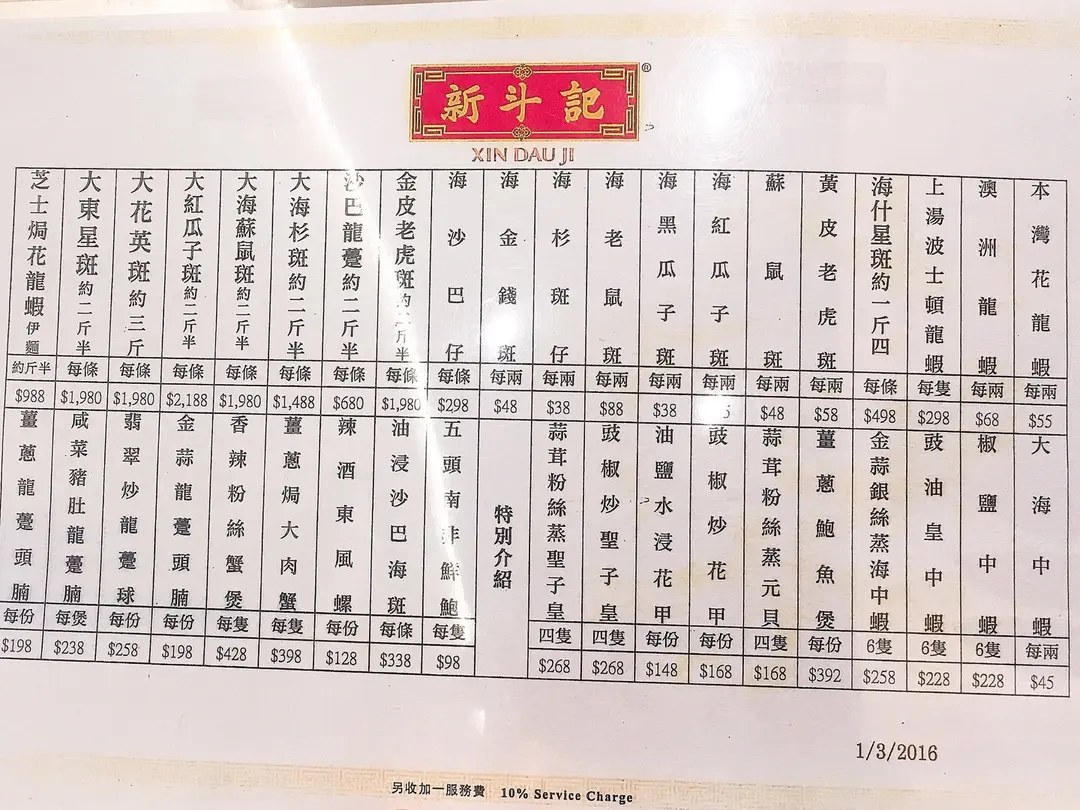 新斗記®
XIN DAU JI
本灣花龍蝦
每兩
$55
澳洲龍蝦
每兩
$68
上湯波士頓龍蝦
每隻
$298
海什星斑約一斤四
每條
$498
黃皮老虎斑
每兩
$58
蘇鼠斑
每兩
$48
海紅瓜子斑
每兩
海黑瓜子斑
每兩
$38
海老鼠斑
每兩
$88
海杉斑仔
每兩
$38
海金錢斑
每兩
$48
海沙巴仔
每條
$298
金皮老虎斑約二斤半
每條
$1,980
沙巴龍躉約二斤半
每條
$680
大海杉斑約二斤半
每條
$1,488
大海蘇鼠斑約二斤半
每條
$1,980
大紅瓜子斑約二斤半
每條
$2,188
大花英斑約三斤
每條
$1,980
大東星斑約二斤半
每條
$1,980
芝士焗花龍蝦伊麵
約斤半
$988
大海中蝦
每兩
$45
椒鹽中蝦
6隻
$228
豉油皇中蝦
6隻
$228
金蒜銀絲蒸海中蝦
6隻
$258
薑蔥鮑魚煲
每份
$392
蒜茸粉絲蒸元貝
四隻
$168
豉椒炒花甲
每份
$168
油鹽水浸花甲
每份
$148
豉椒炒聖子皇
四隻
$268
蒜茸粉絲蒸聖子皇
四隻
$268
特別介紹
五頭南非鮮鮑
每隻
$98
油浸沙巴海斑
每條
$338
辣酒東風螺
每份
$128
薑蔥焗大肉蟹
每隻
$398
香辣粉絲蟹煲
每隻
$428
金蒜龍躉頭腩
每份
$198
翡翠炒龍躉球
每份
$258
咸菜豬肚龍躉腩
每煲
$238
薑蔥龍躉頭腩
每份
$198
1/3/2016
另收加一服務費 10% Service Charge